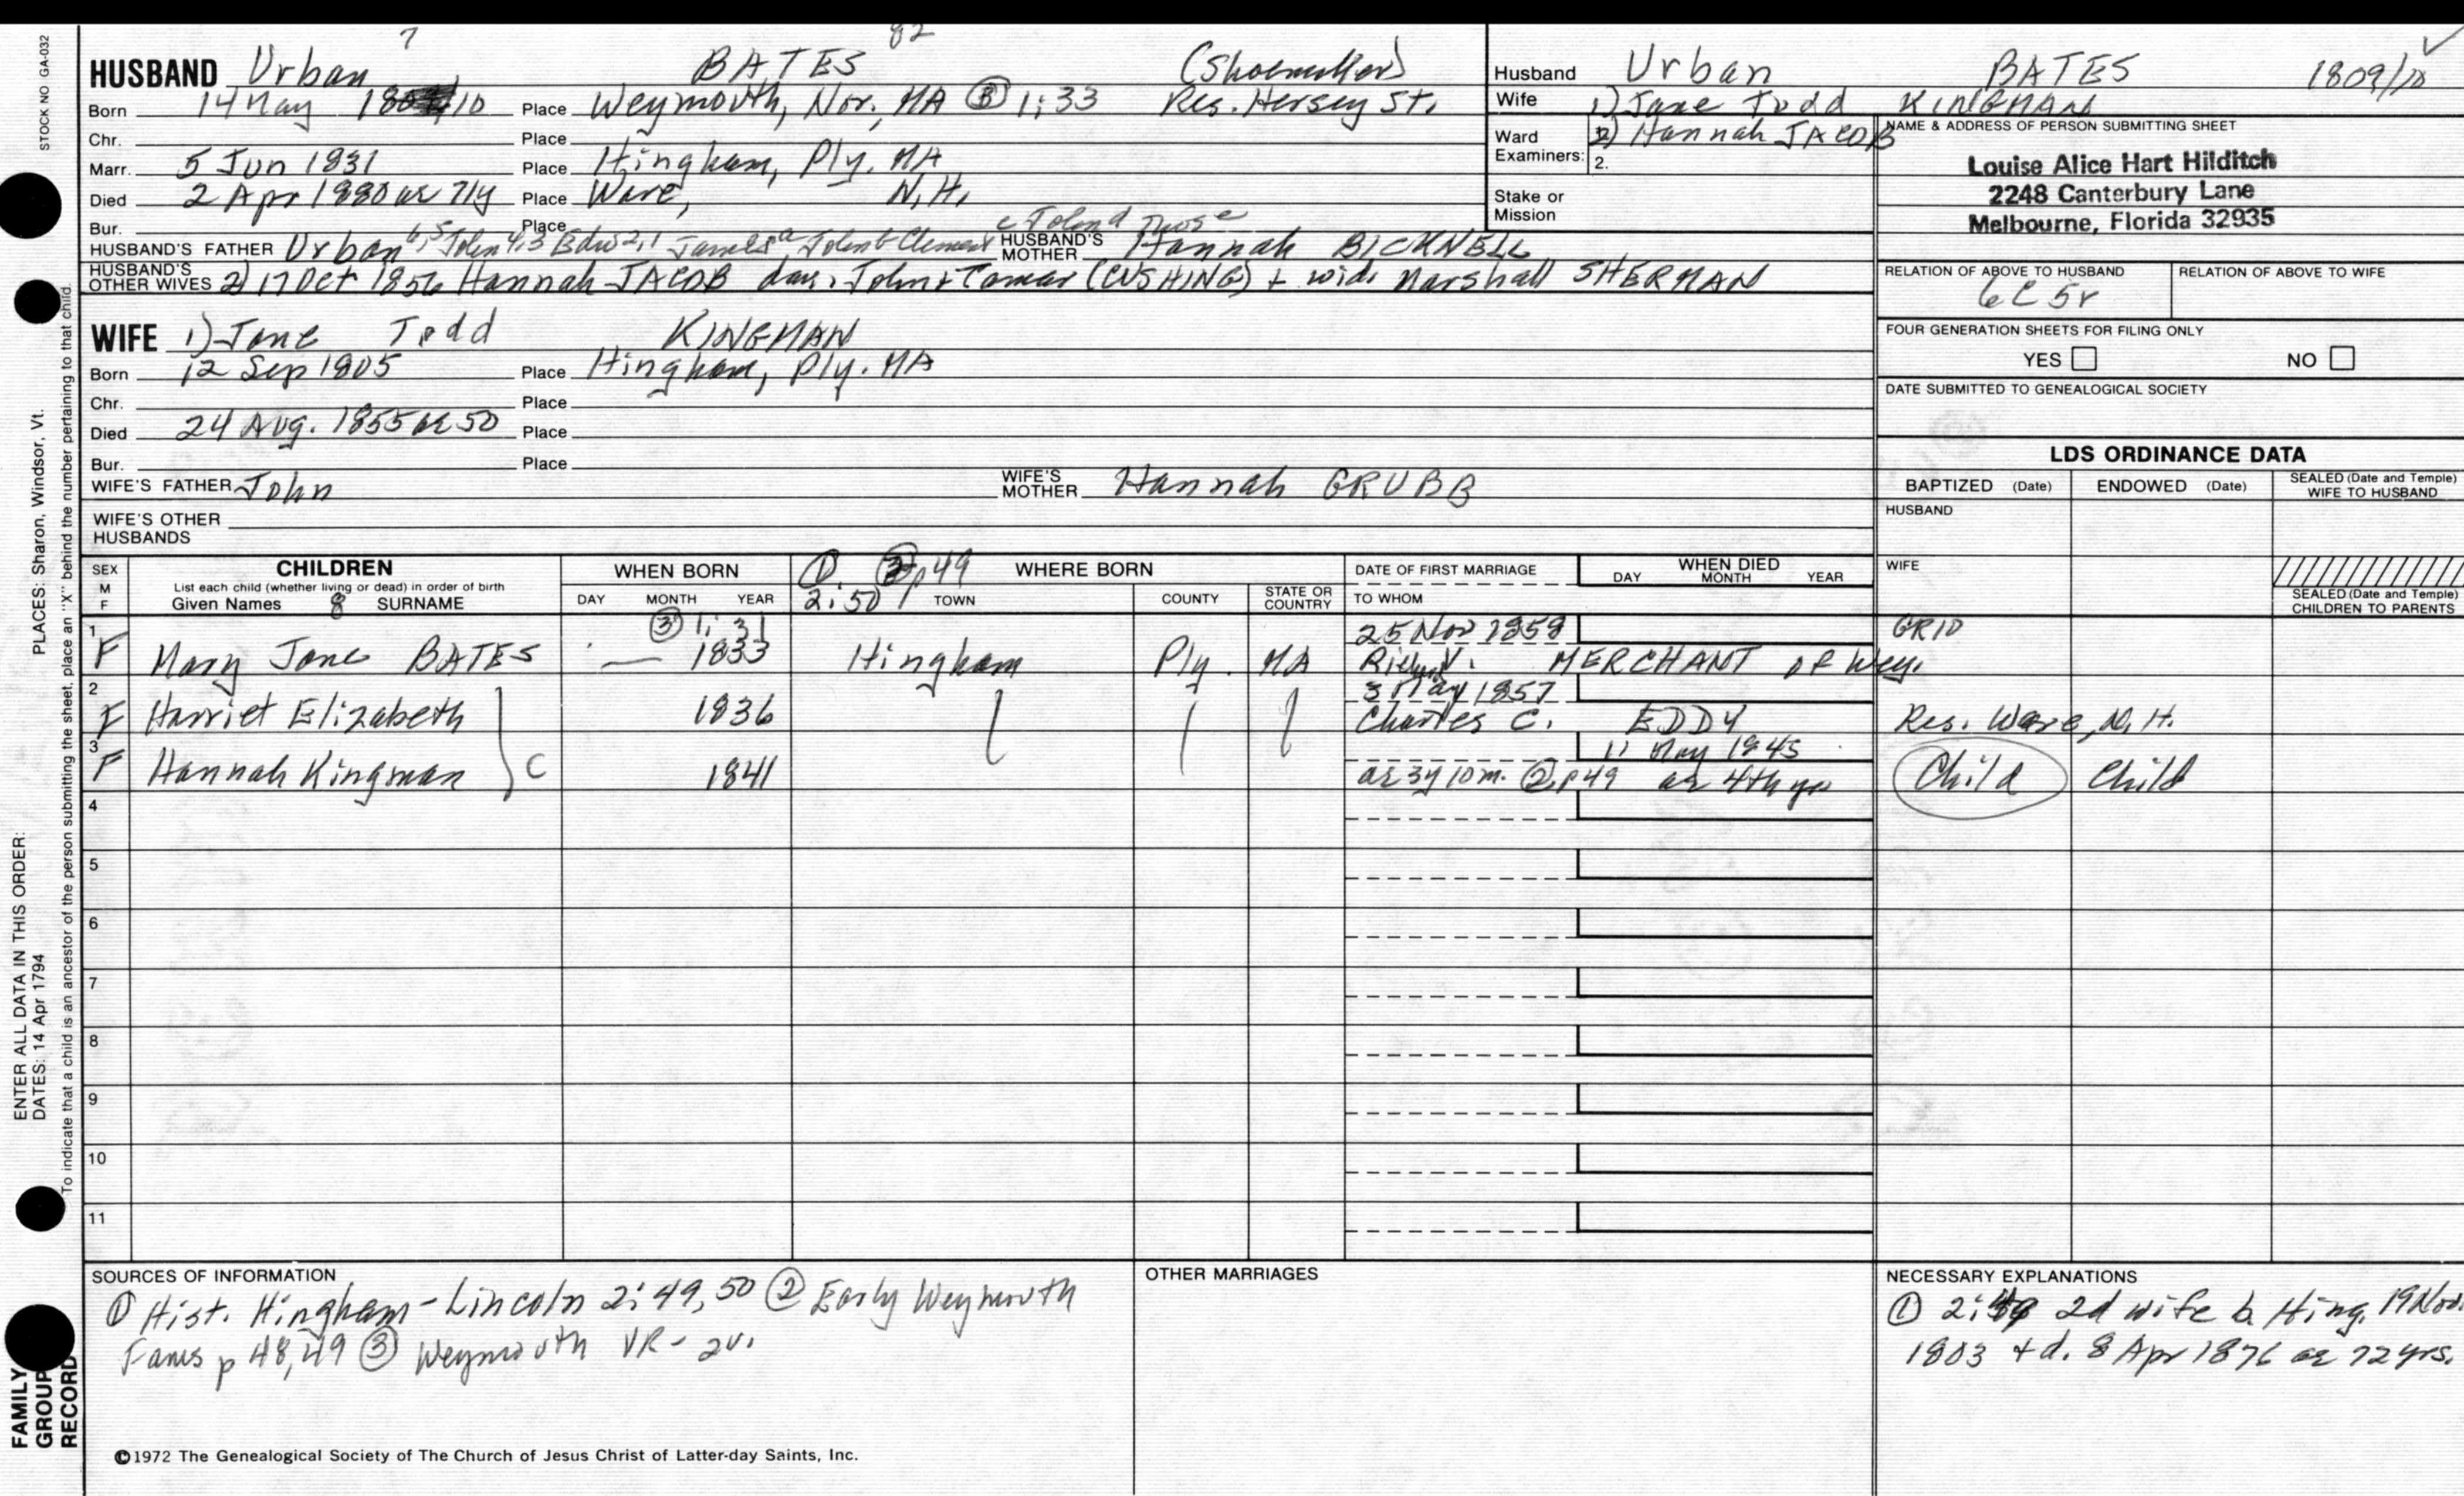 7 82
HUSBAND Urban BATES (Shoemaker) Husband Urban BATES 1809/10
Born 14 May 10 Place Weymouth, Nor., MA ③ 1:33 Res. Hersey St. Wife 1) Jane Todd KINGMAN
Chr. Place Ward 2) Hannah JACOB NAME & ADDRESS OF PERSON SUBMITTING SHEET
Marr. 5 Jun 1831 Place Hingham, Ply. MA Examiners: 2. Louise Alice Hart Hilditch
Died 2 Apr 1880 ae 71y Place Ware, N.H. Stake or Mission 2248 Canterbury Lane
Bur. Place Melbourne, Florida 32935
HUSBAND'S FATHER Urban 6,5 John 4,3 Edw 2,1 James a John b Clement c John d HUSBAND'S MOTHER Hannah BICKNELL
HUSBAND'S OTHER WIVES 2) 17 Oct 1856 Hannah JACOB dau. John + Tamar (CUSHING) + wid. Marshall SHERMAN
RELATION OF ABOVE TO HUSBAND RELATION OF ABOVE TO WIFE
6C 5r
WIFE 1) Jane Todd KINGMAN
FOUR GENERATION SHEETS FOR FILING ONLY
YES NO
Born 12 Sep 1805 Place Hingham, Ply. MA
DATE SUBMITTED TO GENEALOGICAL SOCIETY
Chr. Place
Died 24 Aug. 1855 ae 50 Place
Bur. Place
LDS ORDINANCE DATA
WIFE'S FATHER John WIFE'S MOTHER Hannah GRUBB
BAPTIZED (Date) ENDOWED (Date) SEALED (Date and Temple) WIFE TO HUSBAND
WIFE'S OTHER HUSBANDS
HUSBAND
SEX M F CHILDREN WHEN BORN ① ② p 49 WHERE BORN DATE OF FIRST MARRIAGE WHEN DIED WIFE
List each child (whether living or dead) in order of birth
Given Names 8 SURNAME DAY MONTH YEAR 2:50 TOWN COUNTY STATE OR COUNTRY TO WHOM DAY MONTH YEAR SEALED (Date and Temple) CHILDREN TO PARENTS
1 ③ 1:31 25 Nov 1858 GRID
F Mary Jane BATES — 1833 Hingham Ply. MA V. MERCHANT of Wey.
2 3 May 1857
F Harriet Elizabeth 1836 Charles C. EDDY Res. Ware, N.H.
3 11 May 1845
F Hannah Kingman C 1841 ae 3y 10m. ② p 49 ae 4th yr Child Child
4
5
6
7
8
9
10
11
SOURCES OF INFORMATION OTHER MARRIAGES NECESSARY EXPLANATIONS
① Hist. Hingham - Lincoln 2:49,50 ② Early Weymouth
Fams p 48,49 ③ Weymouth VR - 2v.
① 2: 2d wife b. Hing. 19 Nov.
1803 + d. 8 Apr 1876 ae 72 yrs.
©1972 The Genealogical Society of The Church of Jesus Christ of Latter-day Saints, Inc.
STOCK NO GA-032
PLACES: Sharon, Windsor, Vt.
ENTER ALL DATA IN THIS ORDER:
DATES: 14 Apr 1794
To indicate that a child is an ancestor of the person submitting the sheet, place an "X" behind the number pertaining to that child.
FAMILY
GROUP
RECORD